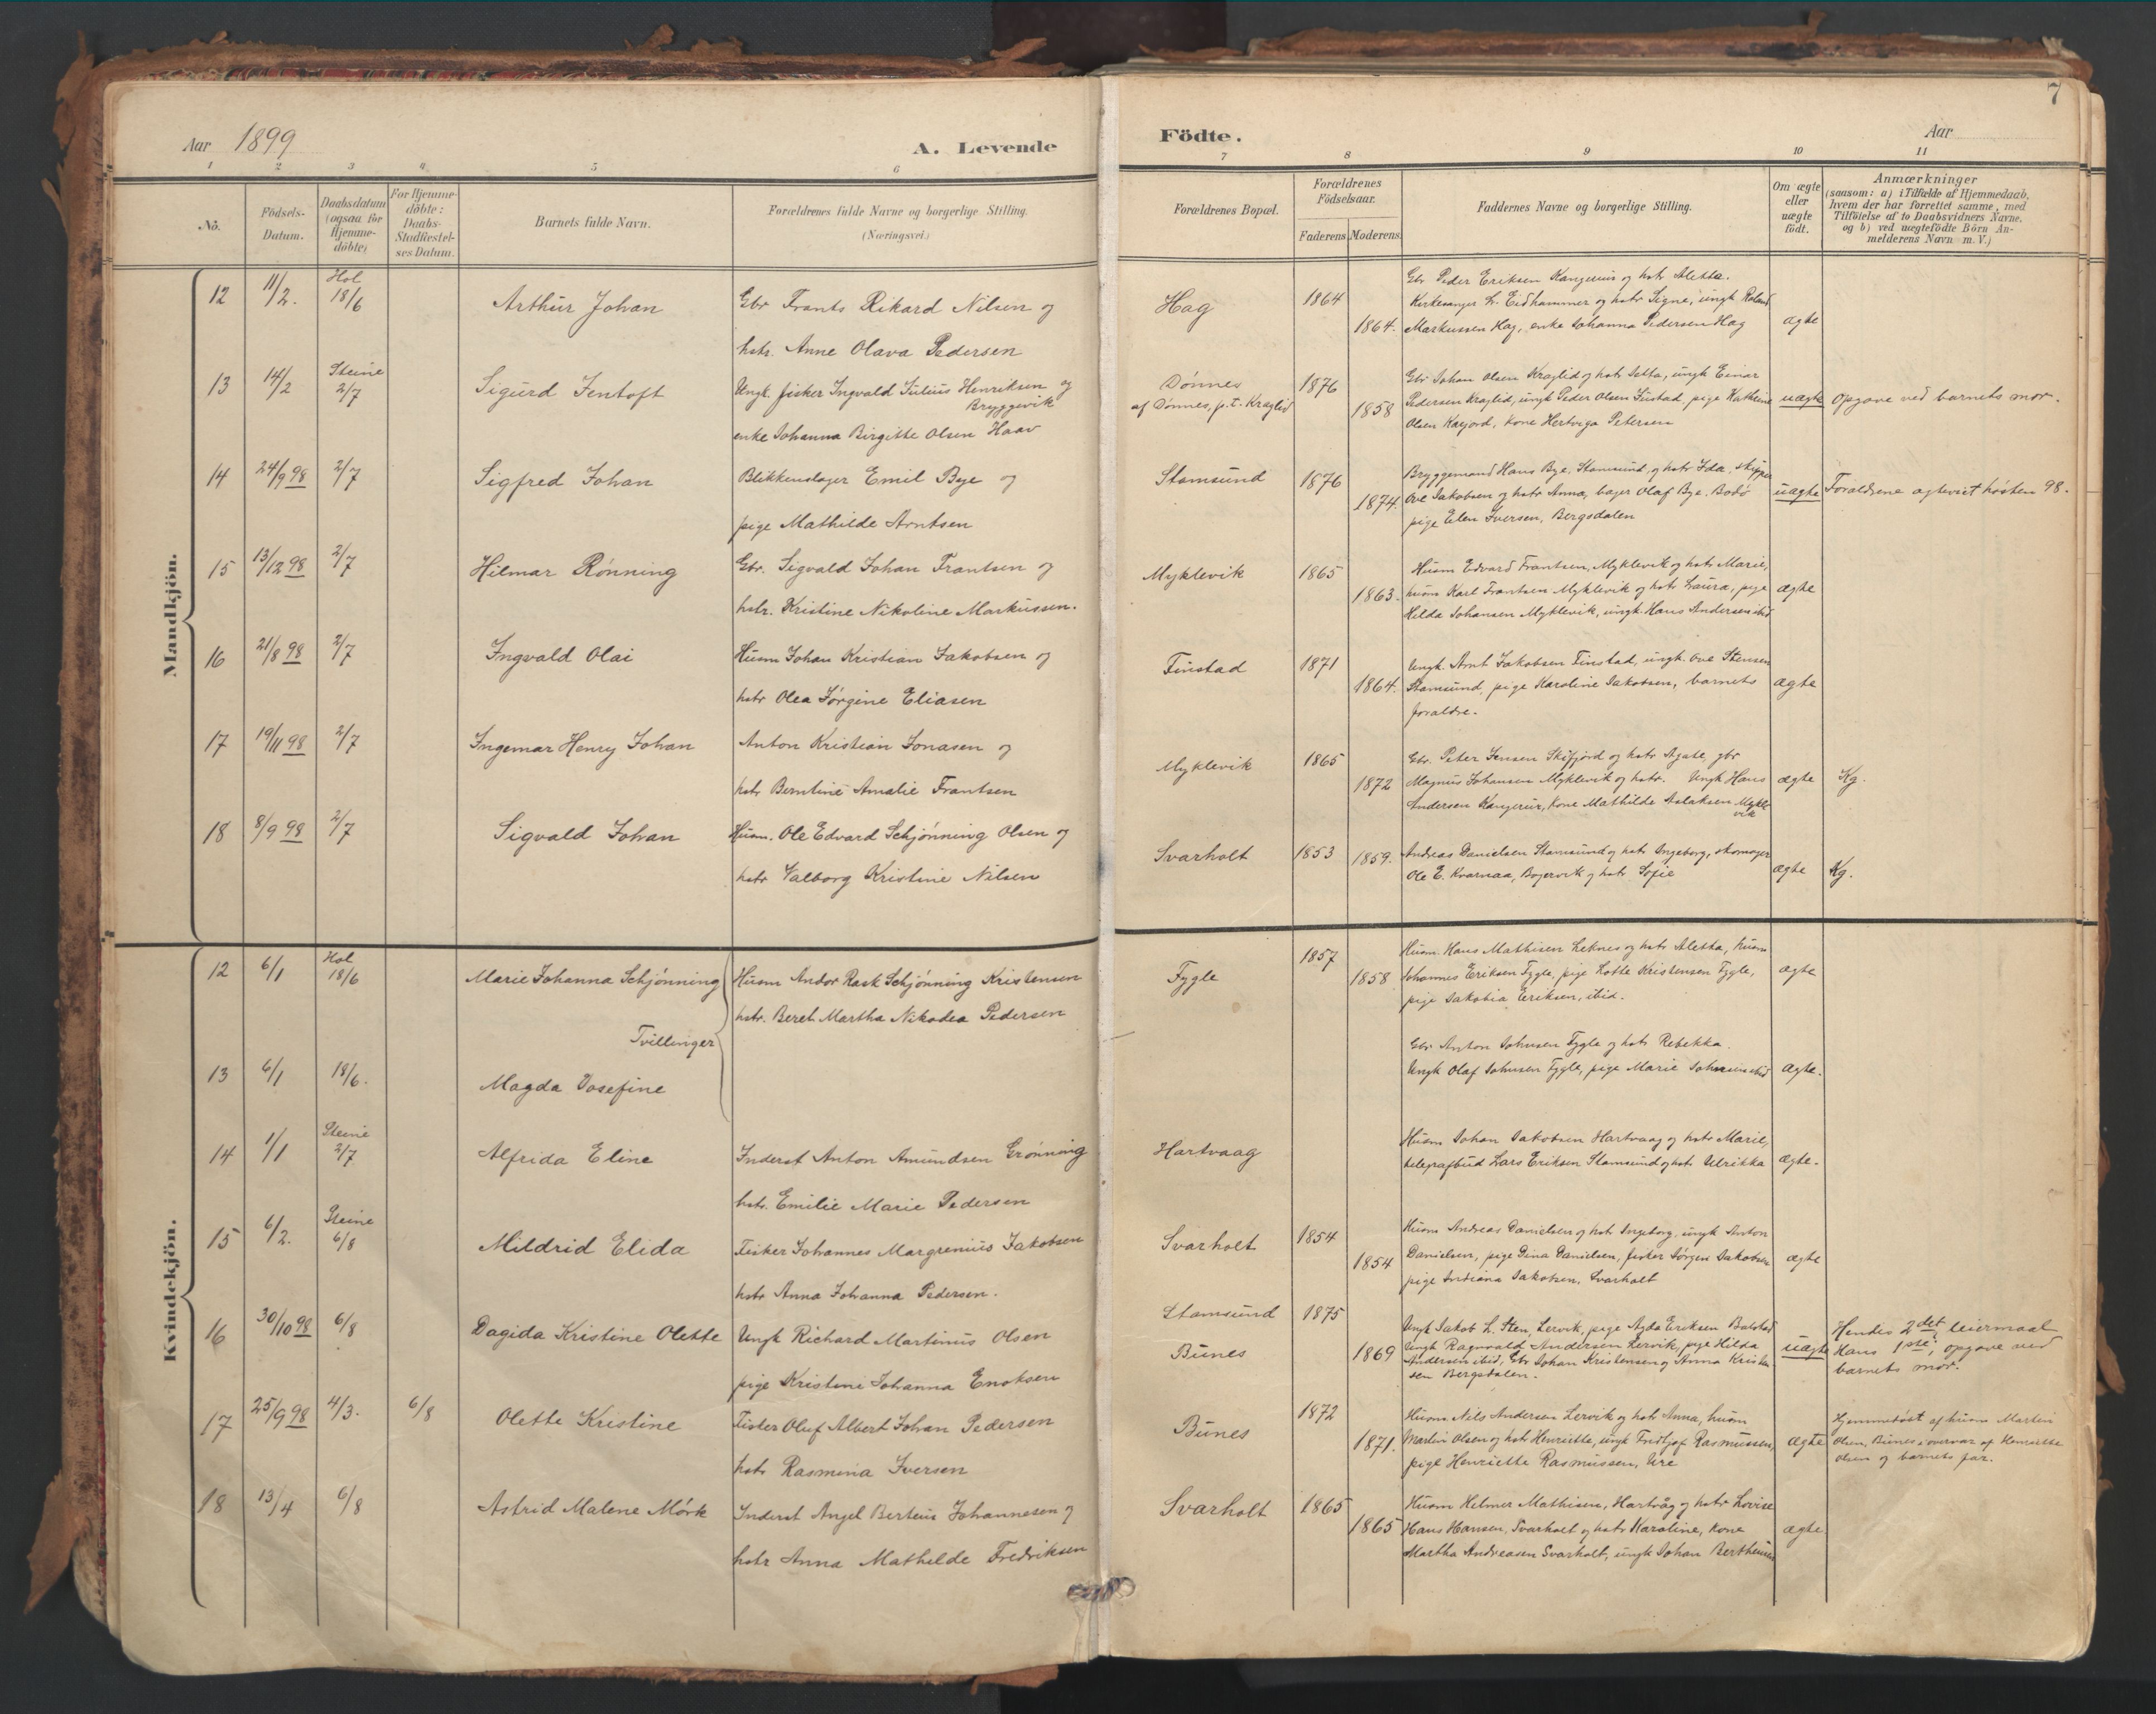 7
Aar 1899
A. Levende Födte.
Aar
1 2 3 4 5 6 7 8 9 10 11
No.
Födsels-Datum.
Daabsdatum (ogsaa for Hjemme-döbte)
For Hjemme-döbte: Daabs-Stadfæstel-ses Datum.
Barnets fulde Navn.
Forældrenes fulde Navne og borgerlige Stilling. (Næringsvei.)
Forældrenes Bopæl.
Forældrenes Födselsaar.
Faderens Moderens
Faddernes Navne og borgerlige Stilling.
Om ægte eller uægte födt.
Anmærkninger
(saasom: a) i Tilfælde af Hjemmedaab,
hvem der har forrettet samme, med
Tilföielse af to Daabsvidners Navne.
og b) ved uægtefödte Börn An-
melderens Navn m. V.)
Mandkjön.
12 11/2. Hol 18/6 Arthur Johan
Gbr Frants Rikard Nilsen og
hstr. Anne Olava Pedersen
Hag 1864 1864.
Gbr Peder Eriksen Kangerur og hstr Aletta.
Kirkesanger Eidhammer og hstr Signe, ungk Roland
Markussen Hag, enke Johanna Pedersen Hag
ægte
13 14/2 Steine 2/7 Sigurd Jentoft
Ungk. fisker Ingvald Julius Henriksen og
Bryggevik
enke Johanna Birgitte Olsen Haav
Dønnes
af Dønnes, p.t. Kraglid 1876 1858
Gbr Johan Olsen Kraglid og hstr Jetta, ungk Einar
Pedersen Kraglid, ungk Peder Olsen Fustad, pige Kathrine
Olsen Karjord, kone Hertviga Petersen
uægte Opgave ved barnets mor.
14 24/9 98 2/7 Sigfred Johan
Blikkenslager Emil Bye og
pige Mathilde Arntsen
Stamsund 1876 1874.
Bryggemand Hans Bye, Stamsund, og hstr Ida, skipper
Ove Jakobsen og hstr Anna, bager Olaf Bye, Bodø
pige Elen Iversen, Bergsdalen
uægte Forældrene egteviet høsten 98.
15 13/12 98 2/7 Hilmar Rönning
Gbr. Sigvald Johan Frantsen og
hstr. Kristine Nikoline Markussen.
Myklevik 1865 1863.
Husm Edvard Frantsen, Myklevik og hstr Marie,
husm Karl Frantsen Myklevik og hstr Laura, pige
Hilda Johansen Myklevik, ungk. Hans Andersen ibid
ægte
16 21/8 98 2/7 Ingvald Olai
Husm Johan Kristian Jakobsen og
hstr Olea Jørgine Eliasen
Finstad 1871 1864.
Ungk. Arnt Jakobsen Finstad, ungk. Ove Stensen
Stamsund, pige Karoline Jakobsen, barnets
forældre.
ægte
17 19/11 98 2/7 Ingemar Henry Johan
Anton Kristian Jonasen og
hstr Berntine Amalie Frantsen
Myklevik 1865 1872
Gbr. Peter Jensen Skifjord og hstr Agate, gbr
Magnus Johansen Myklevik og hstr. Ungk Hans
Andersen Kangerur, kone Mathilde Aslaksen Mykle
vik
ægte Kg.
18 8/9 98 2/7 Sigvald Johan
Husm. Ole Edvard Schjønning Olsen og
hstr Valborg Kristine Nilsen
Svarholt 1853 1859.
Andreas Danielsen Stamsund og hstr Ingeborg, skomager
Ole E. Kvarnaa, Bøjervik og hstr Sofie
ægte Kg.
Kvindekjön.
12 6/1 Hol 18/6 Marie Johanna Schjönning
Husm Andor Rask Schjönning Kristensen
hstr. Beret Martha Nikodea Pedersen
Fygle 1857 1858
Husm. Hans Mathisen Leknes og hstr Aletta, husm
Johannes Eriksen Fygle, pige Lotte Kristensen Fygle,
pige Jakobia Eriksen, ibid.
ægte
Tvillinger
13 6/1 18/6. Magda Josefine
Gbr Anton Johnsen Fygle og hstr Rebekka.
Ungk Olaf Johnsen Fygle, pige Marie Johnsen ibid
ægte.
14 1/1 Steine 2/7 Alfrida Eline
Inderst Anton Amundsen Grönning
hstr. Emilie Marie Pedersen
Hartvaag
Husm Johan Jakobsen Hartvaag og hstr Marie,
telegrafbud Lars Eriksen Stamsund og hstr Ulrikka
ægte.
15 6/2. Steine 6/8 Mildrid Elida
Fisker Johannes Margrenius Jakobsen
hstr Anna Johanna Pedersen.
Svarholt 1854 1854
Husm Andreas Danielsen og hstr Ingeborg, ungk Anton
Danielsen, pige Dina Danielsen, fisker Jørgen Jakobsen
pige Indiana Jakobsen, Svarholt
ægte
16 30/10 98 6/8 Dagida Kristine Olette
Ungk Richard Martinus Olsen
pige Kristine Johanna Enoksen
Stamsund 1875
Bunes 1869
Ungk Jakob L. Sten, Lervik, pige Agda Eriksen Balstad
Ungk Ragnvald Andersen Lervik, pige Hilda
Andersen ibid, Gbr Johan Kristensen og Anna Kristen
sen Bergsdalen.
uægte
Hendes 2det leiermaal
Hans 1ste; opgave ved
barnets mor.
17 25/9 98 4/3. 6/8 Olette Kristine
Fisker Oluf Albert Johan Pedersen
hstr Rasmina Iversen
Bunes 1872 1871.
Husm. Nils Andersen Lervik og hstr Anna, husm
Martin Olsen og hstr Henriette, ungk Fridtjof Rasmussen,
pige Henriette Rasmussen, Ure
ægte
Hjemmedøbt af husm Martin
Olsen, Bunes i overvær af Henriette
Olsen og barnets far.
18 13/4 6/8 Astrid Malene Mörk
Inderst Angel Berteus Johannesen og
hstr Anna Mathilde Fredriksen
Svarholt 1865 1865
Husm Helmer Mathisen, Hartvåg og hstr Lovise
Hans Hansen, Svarholt og hstr Karoline, kone
Martha Andreasen Svarholt, ungk Johan Bertheusen
ægte